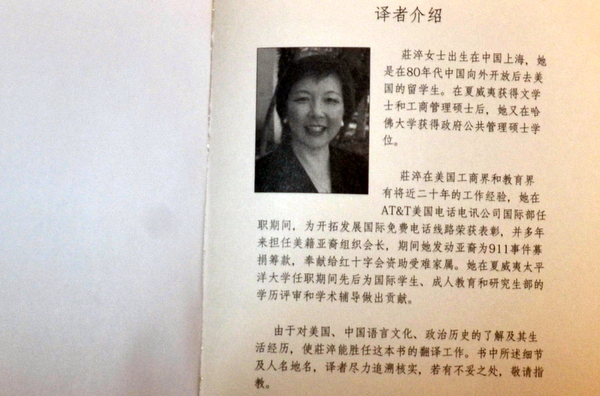 译者介绍
莊淬女士出生在中国上海，她
是在80年代中国向外开放后去美
国的留学生。在夏威夷获得文学
士和工商管理硕士后，她又在哈
佛大学获得政府公共管理硕士学
位。
莊淬在美国工商界和教育界
有将近二十年的工作经验，她在
AT&T美国电话电讯公司国际部任
职期间，为开拓发展国际免费电话线路荣获表彰，并多年
来担任美籍亚裔组织会长，期间她发动亚裔为911事件募
捐筹款，奉献给红十字会资助受难家属。她在夏威夷太平
洋大学任职期间先后为国际学生、成人教育和研究生部的
学历评审和学术辅导做出贡献。
由于对美国、中国语言文化、政治历史的了解及其生
活经历，使莊淬能胜任这本书的翻译工作。书中所述细节
及人名地名，译者尽力追溯核实，若有不妥之处，敬请指
教。